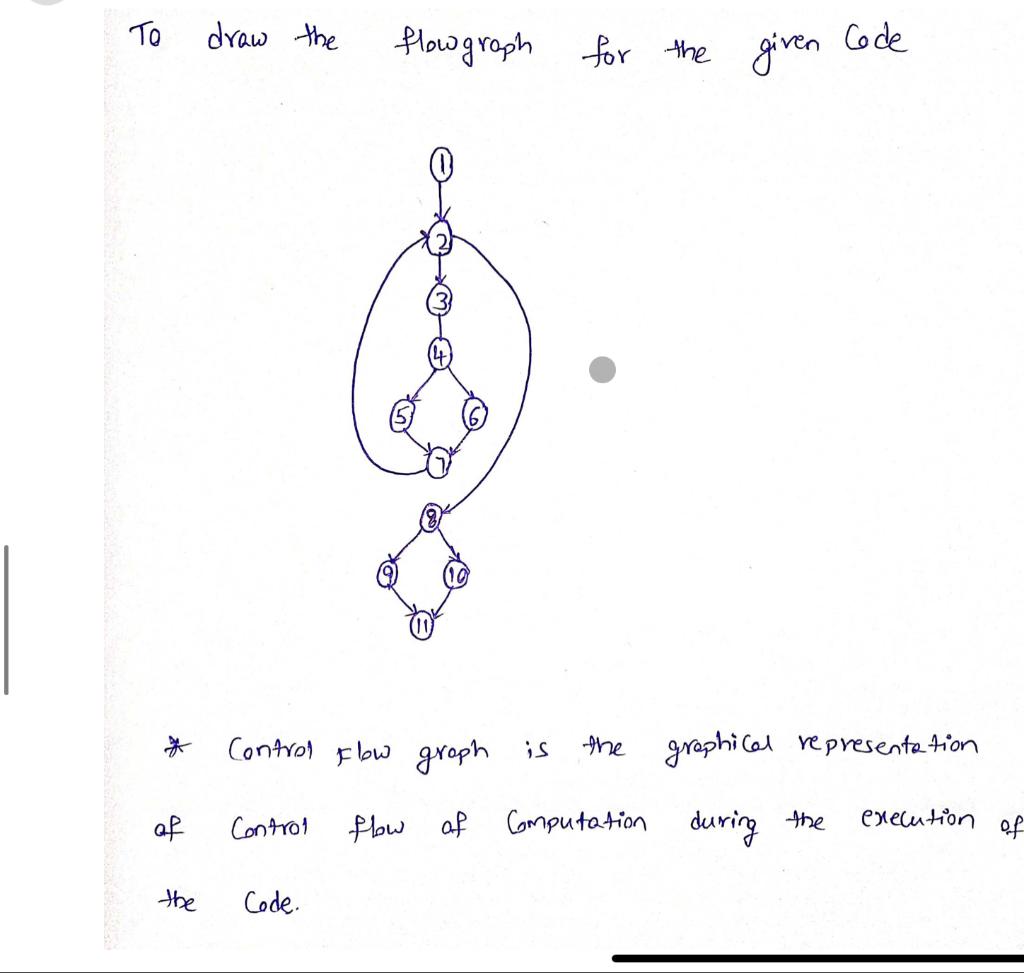 To draw the flowgraph for the given Code
1
2
3
4
5 6
7
8
9 10
11
* Control Flow graph is the graphical representation
of Control flow of Computation during the execution of
the Code.